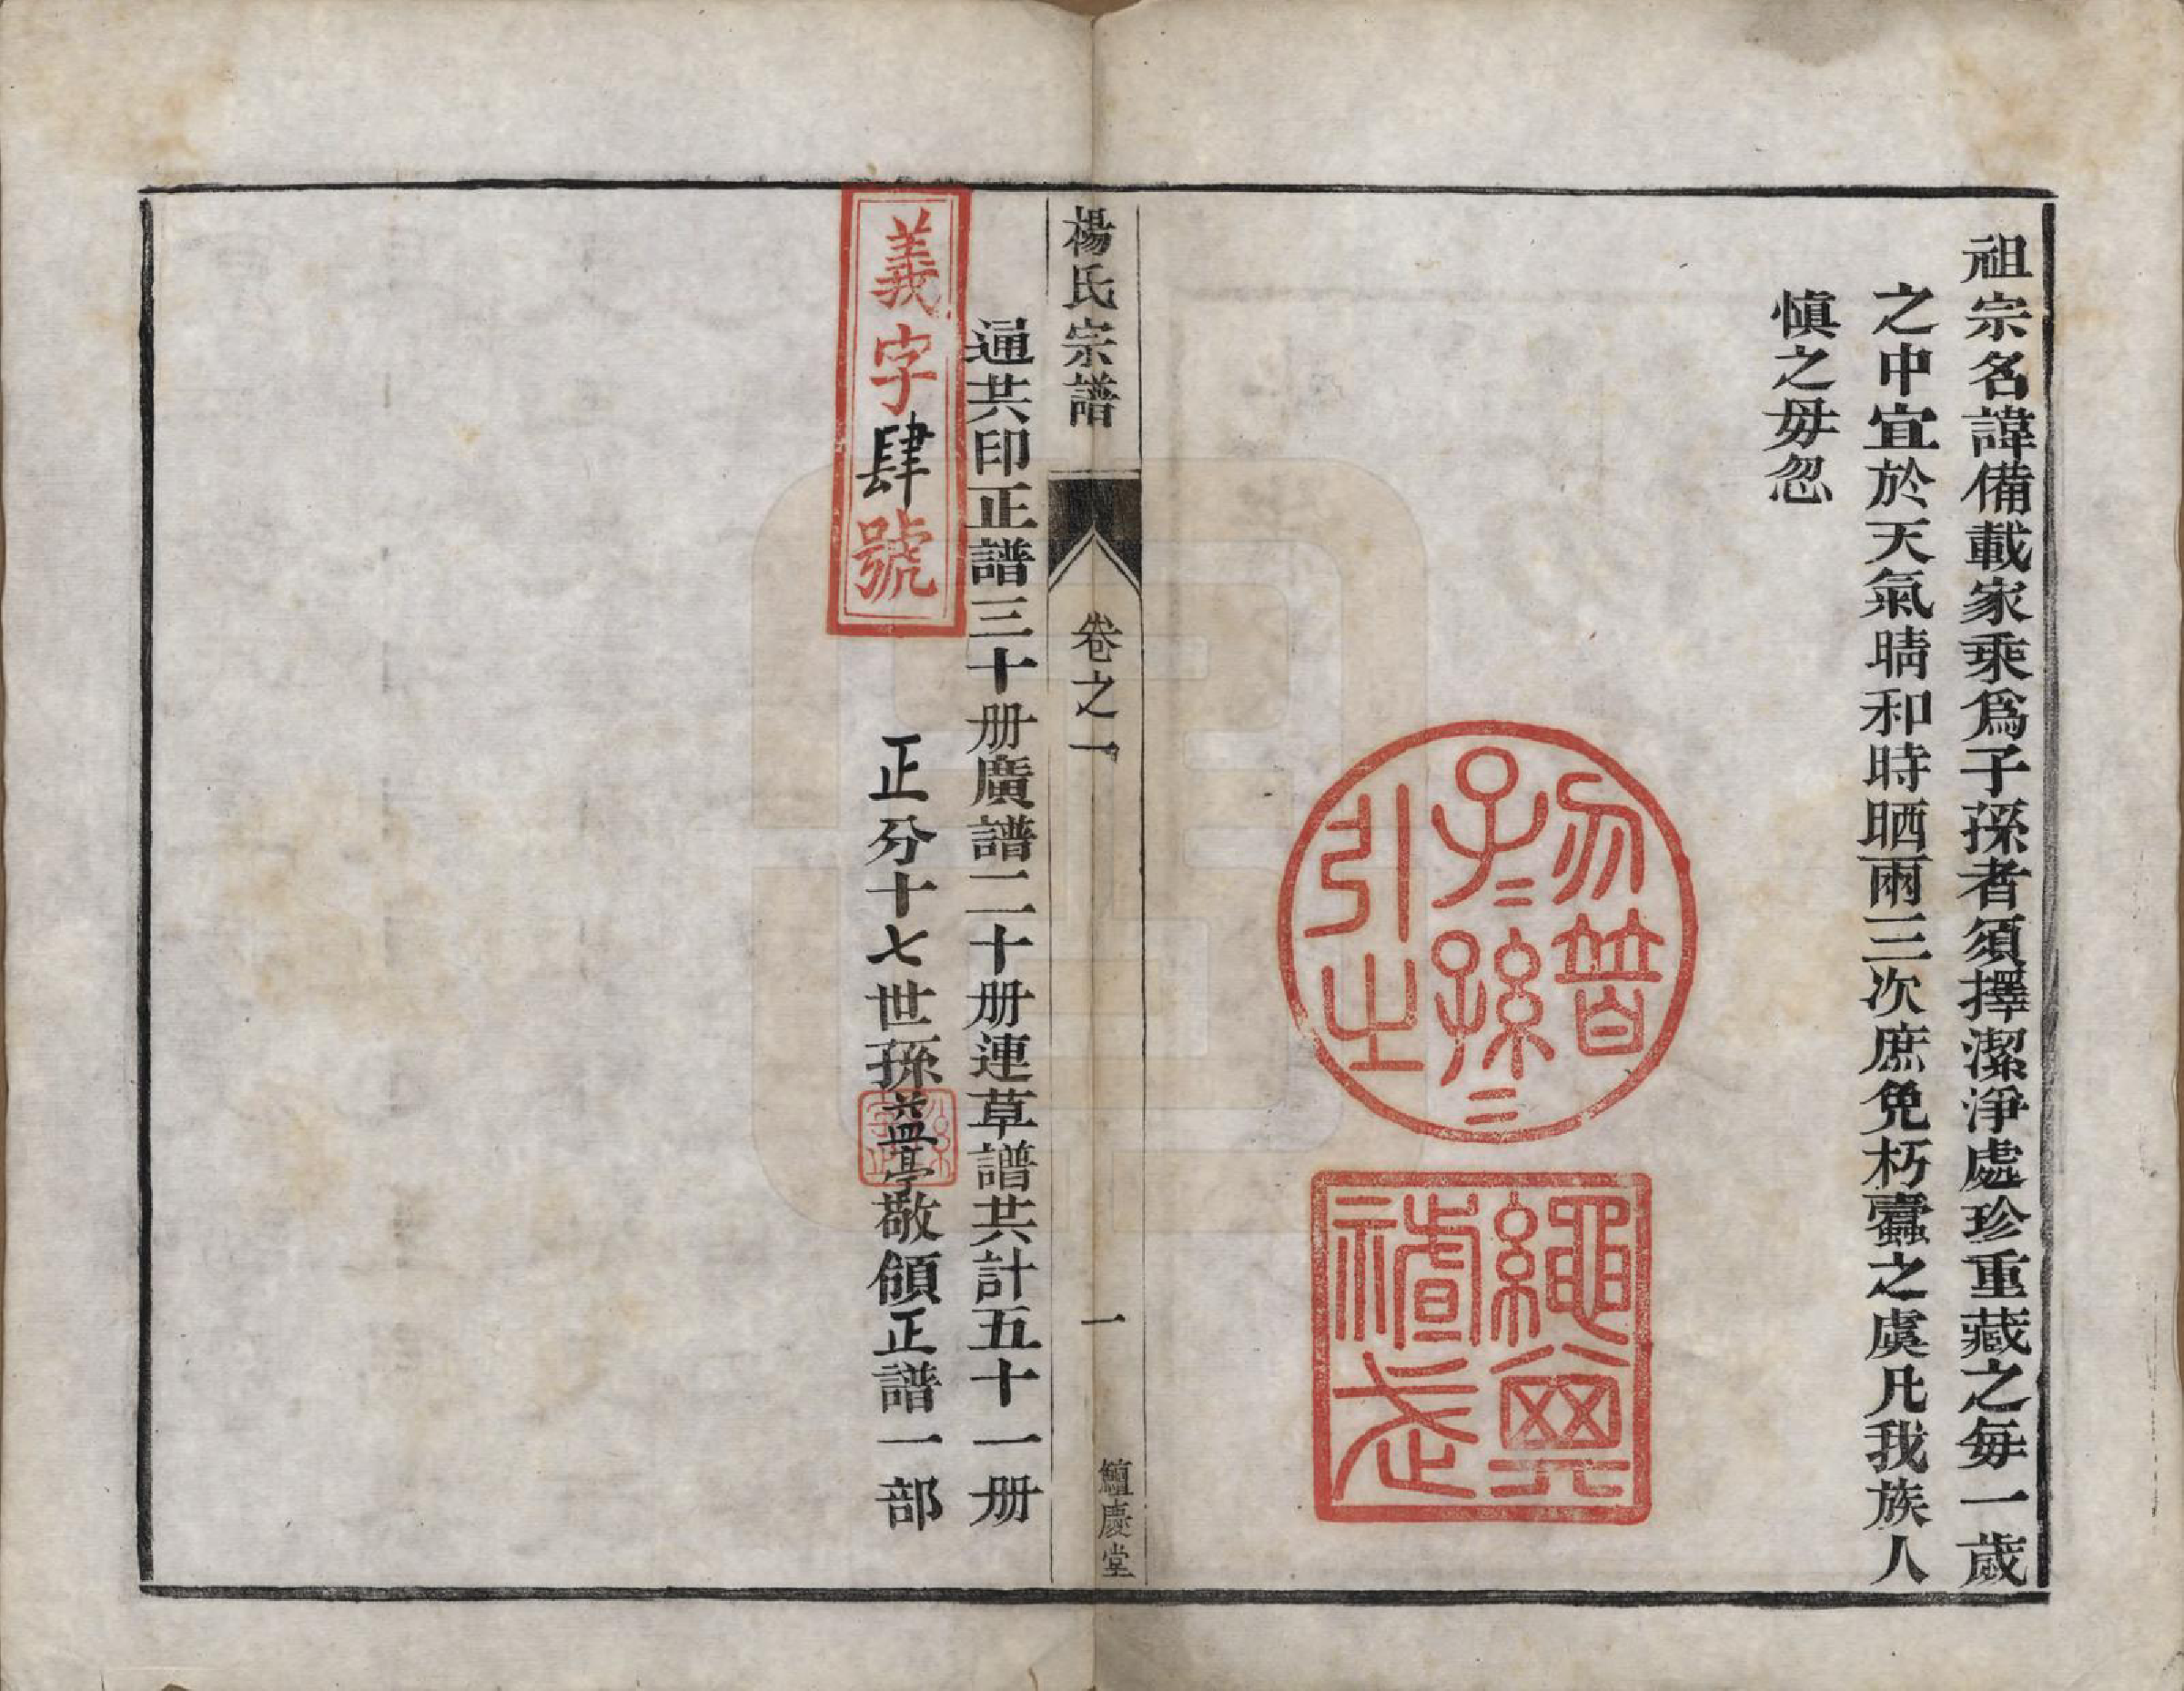 祖宗名諱備載家乘爲子孫者須擇潔淨處珍重藏之每一歲
之中宜於天氣晴和時晒兩三次庶免朽蠹之虞凡我族人
愼之毋忽
勿替
子二孫二
引之
繩其
祖武
楊氏宗譜
卷之一
一
鱣慶堂
通共印正譜三十册廣譜二十册連草譜共計五十一册
義字肆號
正分十七世孫益亭敬領正譜一部